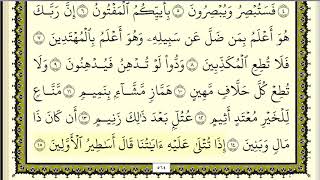 ٤ فَسَتُبْصِرُ وَيُبْصِرُونَ ٥ بِأَييِّكُمُ ٱلْمَفْتُونُ ٦ إِنَّ رَبَّكَ
هُوَ أَعْلَمُ بِمَن ضَلَّ عَن سَبِيلِهِۦ وَهُوَ أَعْلَمُ بِٱلْمُهْتَدِينَ ٧
فَلَا تُطِعِ ٱلْمُكَذِّبِينَ ٨ وَدُّوا۟ لَوْ تُدْهِنُ فَيُدْهِنُونَ ٩ وَلَا
تُطِعْ كُلَّ حَلَّافٍ مَّهِينٍ ١٠ هَمَّازٍ مَّشَّآءٍۭ بِنَمِيمٍ ١١ مَّنَّاعٍ
لِّلْخَيْرِ مُعْتَدٍ أَثِيمٍ ١٢ عُتُلٍّۭ بَعْدَ ذَٰلِكَ زَنِيمٍ ١٣ أَن كَانَ ذَا
مَالٍ وَبَنِينَ ١٤ إِذَا تُتْلَىٰ عَلَيْهِ ءَايَـٰتُنَا قَالَ أَسَـٰطِيرُ ٱلْأَوَّلِينَ ١٥
٥٦٤